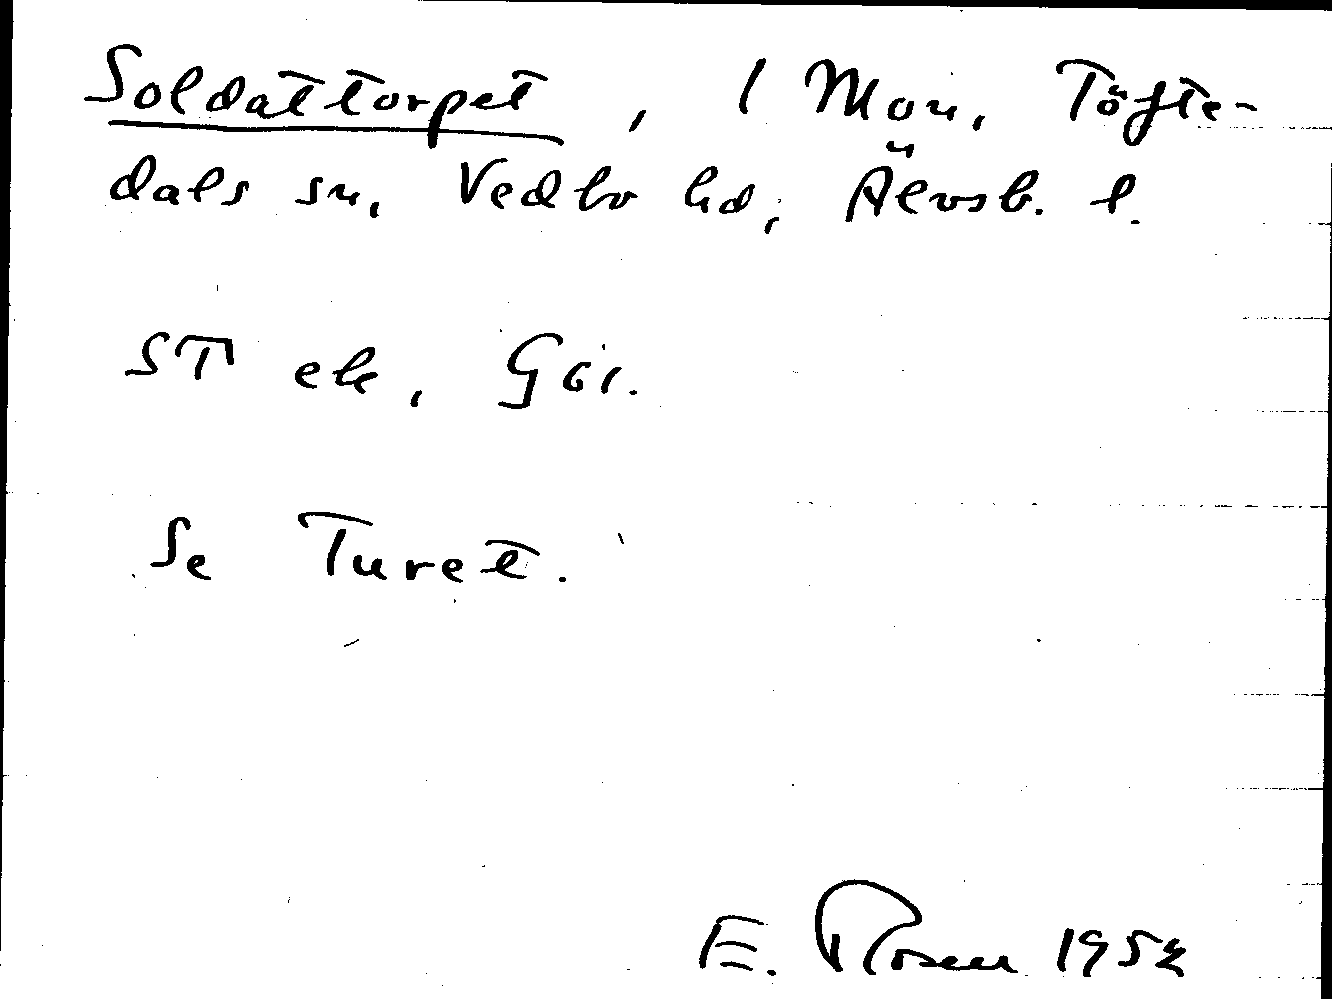 Soldattorpet, 1 Mon, Töfte-
dals sn, Vedbo hd, Älvsb. l.
ST ek,
Se Turet.
E. Rosen 1952